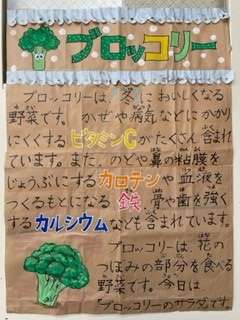 ブロッコリー
ブロッコリーは、冬においしくなる
野菜です。かぜや病気などにかかり
にくくするビタミンCがたくさん含まれ
ています。また、のどや鼻の粘膜を
じょうぶにするカロテンや血液を
つくるもとになる鉄、骨や歯を強く
するカルシウムなども含まれています。
ブロッコリーは、花の
つぼみの部分を食べる
野菜です。今日は
「ブロッコリーのサラダ」です。